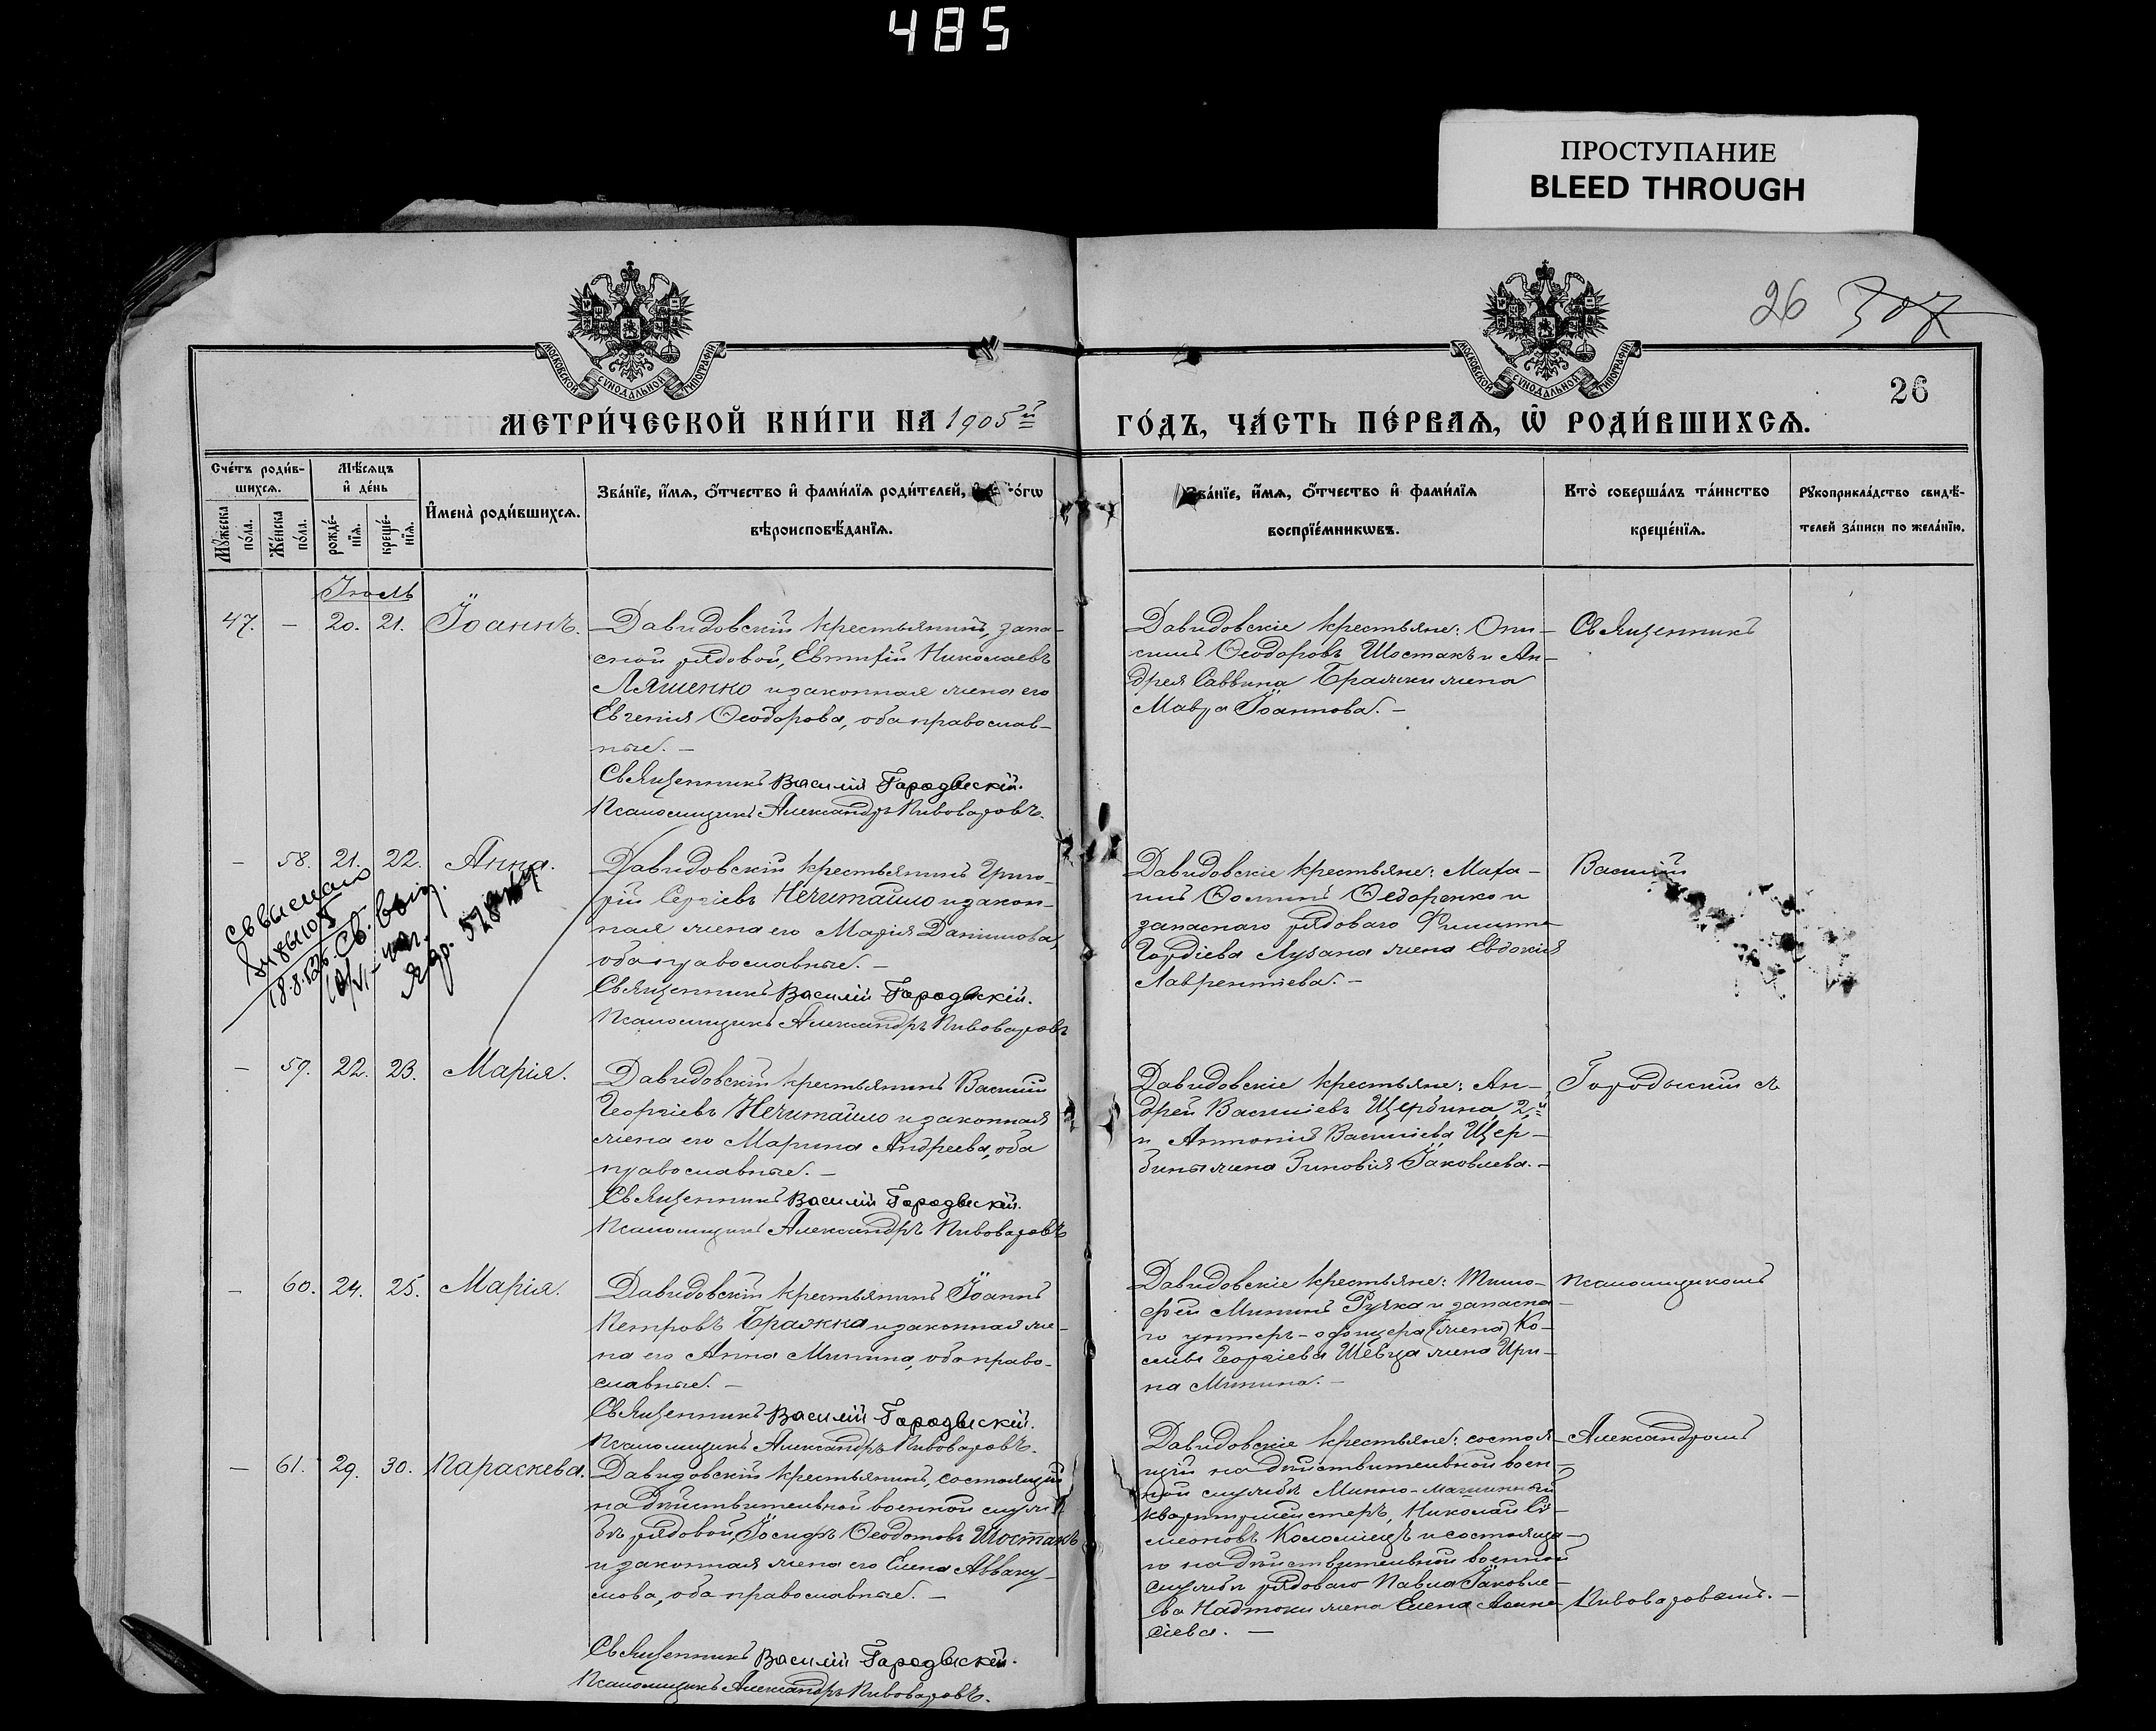 485
ПРОСТУПАНИЕ
BLEED THROUGH
26 307
26
МОСКОВСКОЙ СѴНОДАЛЬНОЙ ТИПОГРАФІИ
МОСКОВСКОЙ СѴНОДАЛЬНОЙ ТИПОГРАФІИ
МЕТРИ́ЧЕСКОЙ КНИ́ГИ НА 1905й
ГО́ДЪ, ЧА́СТЬ ПЕ́РВАѦ, Ѡ҆ РОДИ́ВШИХСѦ.
Сче́тъ роди́в-
шихсѧ.
Мꙋ́жеска по́ла.
Же́нска по́ла.
Мѣ́сѧцъ
и҆ де́нь
рожде́-
нїѧ.
креще́-
нїѧ.
И҆мена̀ роди́вшихсѧ.
Зва́нїе, и҆́мѧ, о҆́тчество и҆ фами́лїѧ роди́телей,
вѣроисповѣ́данїѧ.
Зва́нїе, и҆́мѧ, о҆́тчество и҆ фами́лїѧ
воспрїе́мникѡвъ.
Кто̀ соверша́лъ та́инство
креще́нїѧ.
Рꙋкоприкла́дство свидѣ́-
телей за́писи по жела́нїю.
Іюль
47. — 20. 21. Іоаннъ.
Давидовскій крестьянинъ, запа-
сной рядовой, Евтихій Николаевъ
Ляшенко и законная жена его
Евгенія Ѳеодорова, оба православ-
ные. —
Священникъ Василій Городыскій.
Псаломщикъ Александръ Пивоваровъ.
Давидовскіе крестьяне: Они-
симъ Ѳеодоровъ Шостакъ и Ан-
дрея Саввина Бражки жена
Мавра Іоаннова. —
Священникъ
— 58. 21. 22. Анна.
Давидовскій крестьянинъ Григо-
рій Сергіевъ Нечитайло и закон-
ная жена его Марія Даниилова,
оба православные. —
Священникъ Василій Городыскій.
Псаломщикъ Александръ Пивоваровъ
Давидовскіе крестьяне: Миха-
илъ Ѳоминъ Ѳедоренко и
запаснаго рядоваго Филиппа
Гордіева Лузана жена Евдокія
Лаврентіева. —
Василій
— 59. 22. 23. Марія.
Давидовскій крестьянинъ Василій
Георгіевъ Нечитайло и законная
жена его Марина Андреева, оба
православные. —
Священникъ Василій Городыскій.
Псаломщикъ Александръ Пивоваровъ
Давидовскіе крестьяне: Ан-
дрей Василіевъ Щербина, 2й
и Антонія Василіева Щер-
бины жена Зиновія Іаковлева. —
Городыскій съ
— 60. 24. 25. Марія.
Давидовскій крестьянинъ Іоаннъ
Петровъ Бражка и законная же-
на его Анна Минина, оба право-
славные. —
Священникъ Василій Городыскій.
Псаломщикъ Александръ Пивоваровъ.
Давидовскіе крестьяне: Тимо-
фей Мининъ Ручка и запасна-
го унтеръ-офицера (жена) Ко-
смы Георгіева Шевца жена Ири-
на Минина. —
псаломщикомъ
— 61. 29. 30. Параскева.
Давидовскій крестьянинъ, состоящій
на дѣйствительной военной служ-
бѣ рядовой, Іосифъ Ѳеодотовъ Шостакъ
и законная жена его Елена Авваку-
мова, оба православные. —
Священникъ Василій Городыскій.
Псаломщикъ Александръ Пивоваровъ.
Давидовскіе крестьяне: состоя-
щій на дѣйствительной воен-
ной службѣ Минно-машинный
квартирмейстеръ, Николай Си-
меоновъ Коломіецъ и состояща-
го на дѣйствительной военной
службѣ рядоваго Павла Іаковле-
ва Надточи жена Елена
сіева. —
Александромъ
Пивоваровымъ. —